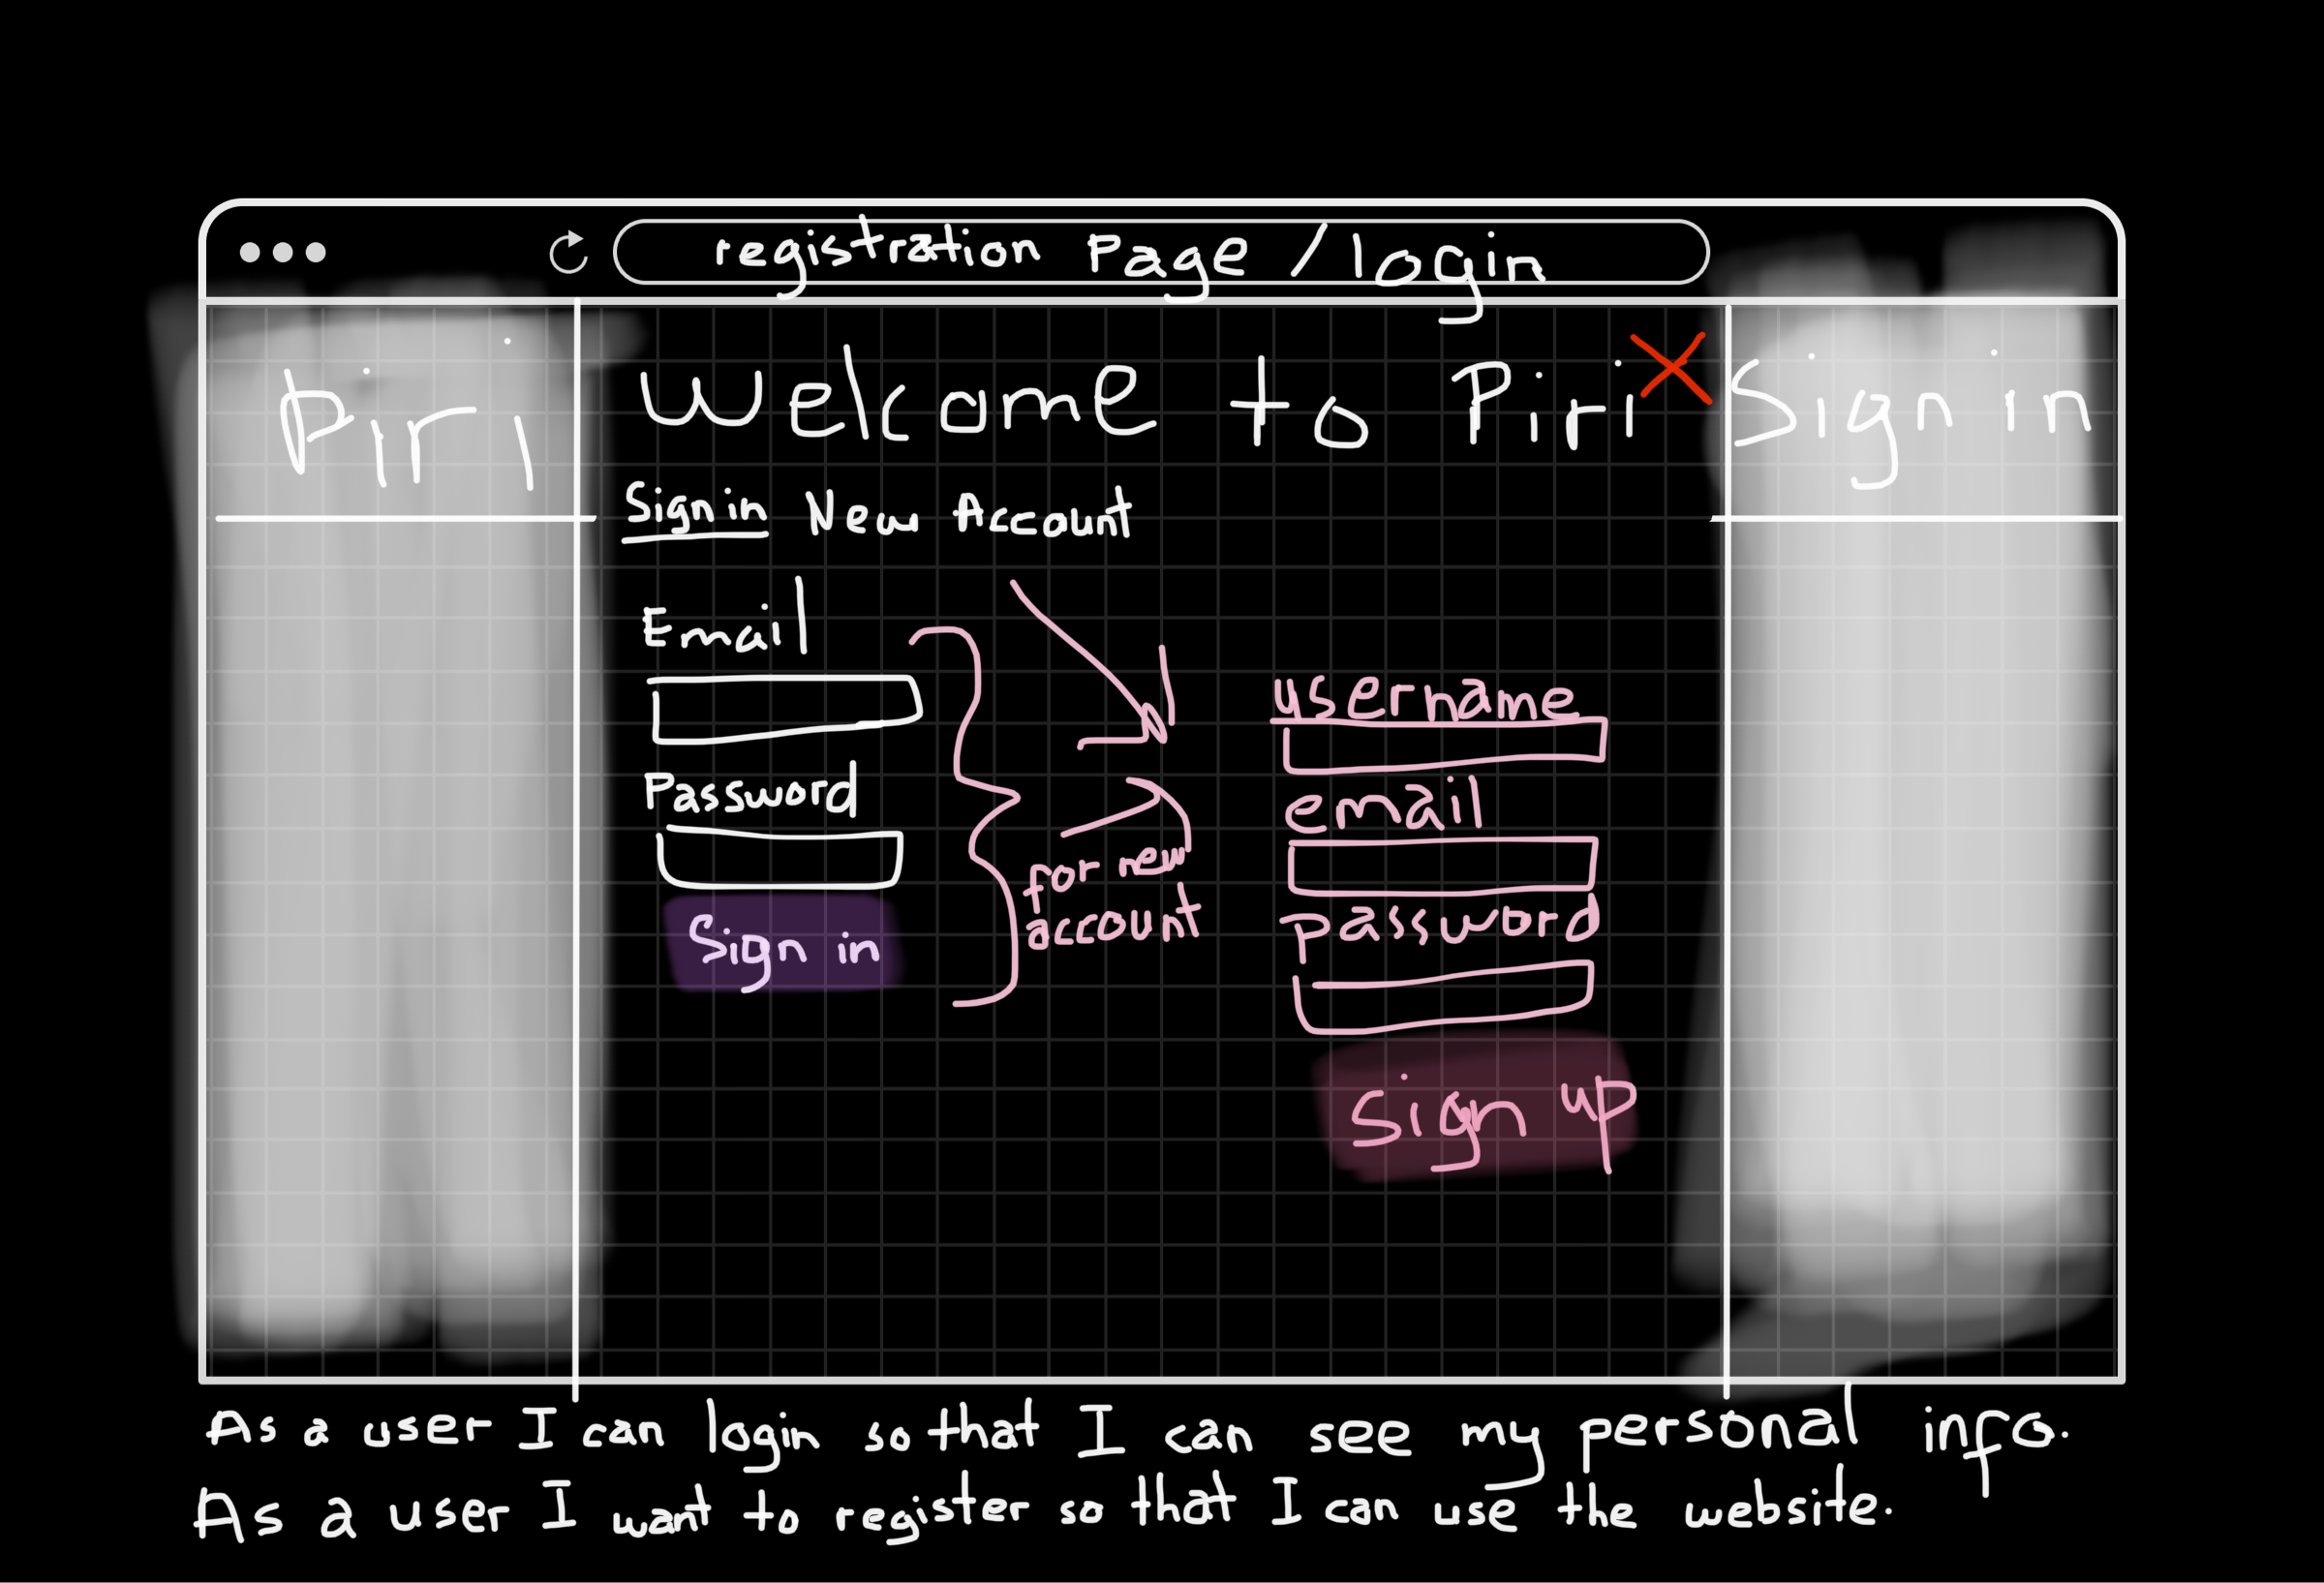 registration Page / login
Piri
Welcome to Piri
Sign in
Sign in New Account
Email
Password
Sign in
for new
account
username
email
password
Sign up
As a user I can login so that I can see my personal info.
As a user I want to register so that I can use the website.